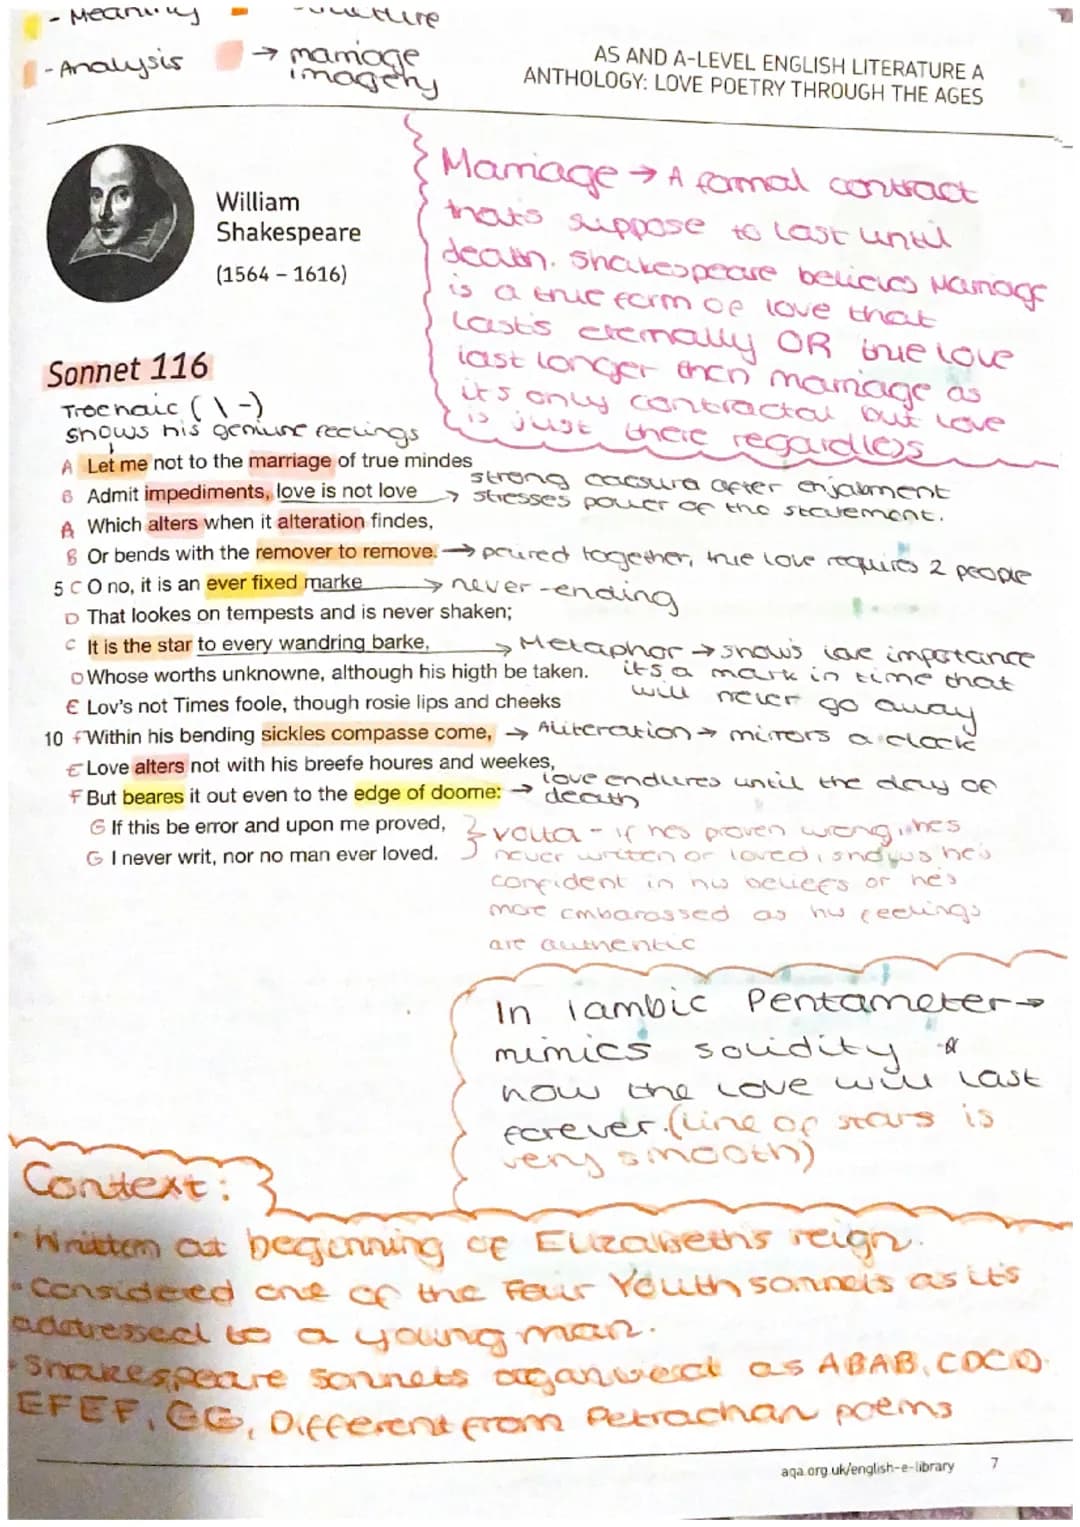 - Meaning
- Analysis → marriage
imagery
AS AND A-LEVEL ENGLISH LITERATURE A
ANTHOLOGY: LOVE POETRY THROUGH THE AGES
William
Shakespeare
(1564 – 1616)
Marriage → A formal contract
thats suppose to last until
death. Shakespeare believes Marriage
is a true form of love that
lasts eternally OR true love
last longer then marriage as
its only contractal but love
is just there regardless
Sonnet 116
Trochaic (\ -)
shows his geniune feelings
A Let me not to the marriage of true mindes
B Admit impediments, love is not love → strong caesura after enjabment
stresses power of the statement.
A Which alters when it alteration findes,
B Or bends with the remover to remove. → paired together, true love requires 2 people
5 C O no, it is an ever fixed marke → never-ending
D That lookes on tempests and is never shaken;
C It is the star to every wandring barke, → Metaphor → shows love importance
its a mark in time that
will never go away
D Whose worths unknowne, although his higth be taken.
E Lov's not Times foole, though rosie lips and cheeks
10 F Within his bending sickles compasse come, → Aliteration → mirrors a clock
E Love alters not with his breefe houres and weekes,
F But beares it out even to the edge of doome: → love endures until the day of
death
G If this be error and upon me proved,
G I never writ, nor no man ever loved.
volta - if hes proven wrong, hes
never written or loved, shows he's
confident in his beliefs or he's
more embarassed as his feelings
are authentic
In Iambic Pentameter →
mimics solidity &
how the love will last
forever. (Line of stars is
very smooth)
Context:
• Written at beginning of Elizabeth's reign.
• Considered one of the Fair Youth sonnets as it's
addressed to a young man.
• Shakespeare sonnets organised as ABAB, CDCD.
EFEF, GG, Different from Petrachan poems
aqa.org.uk/english-e-library 7